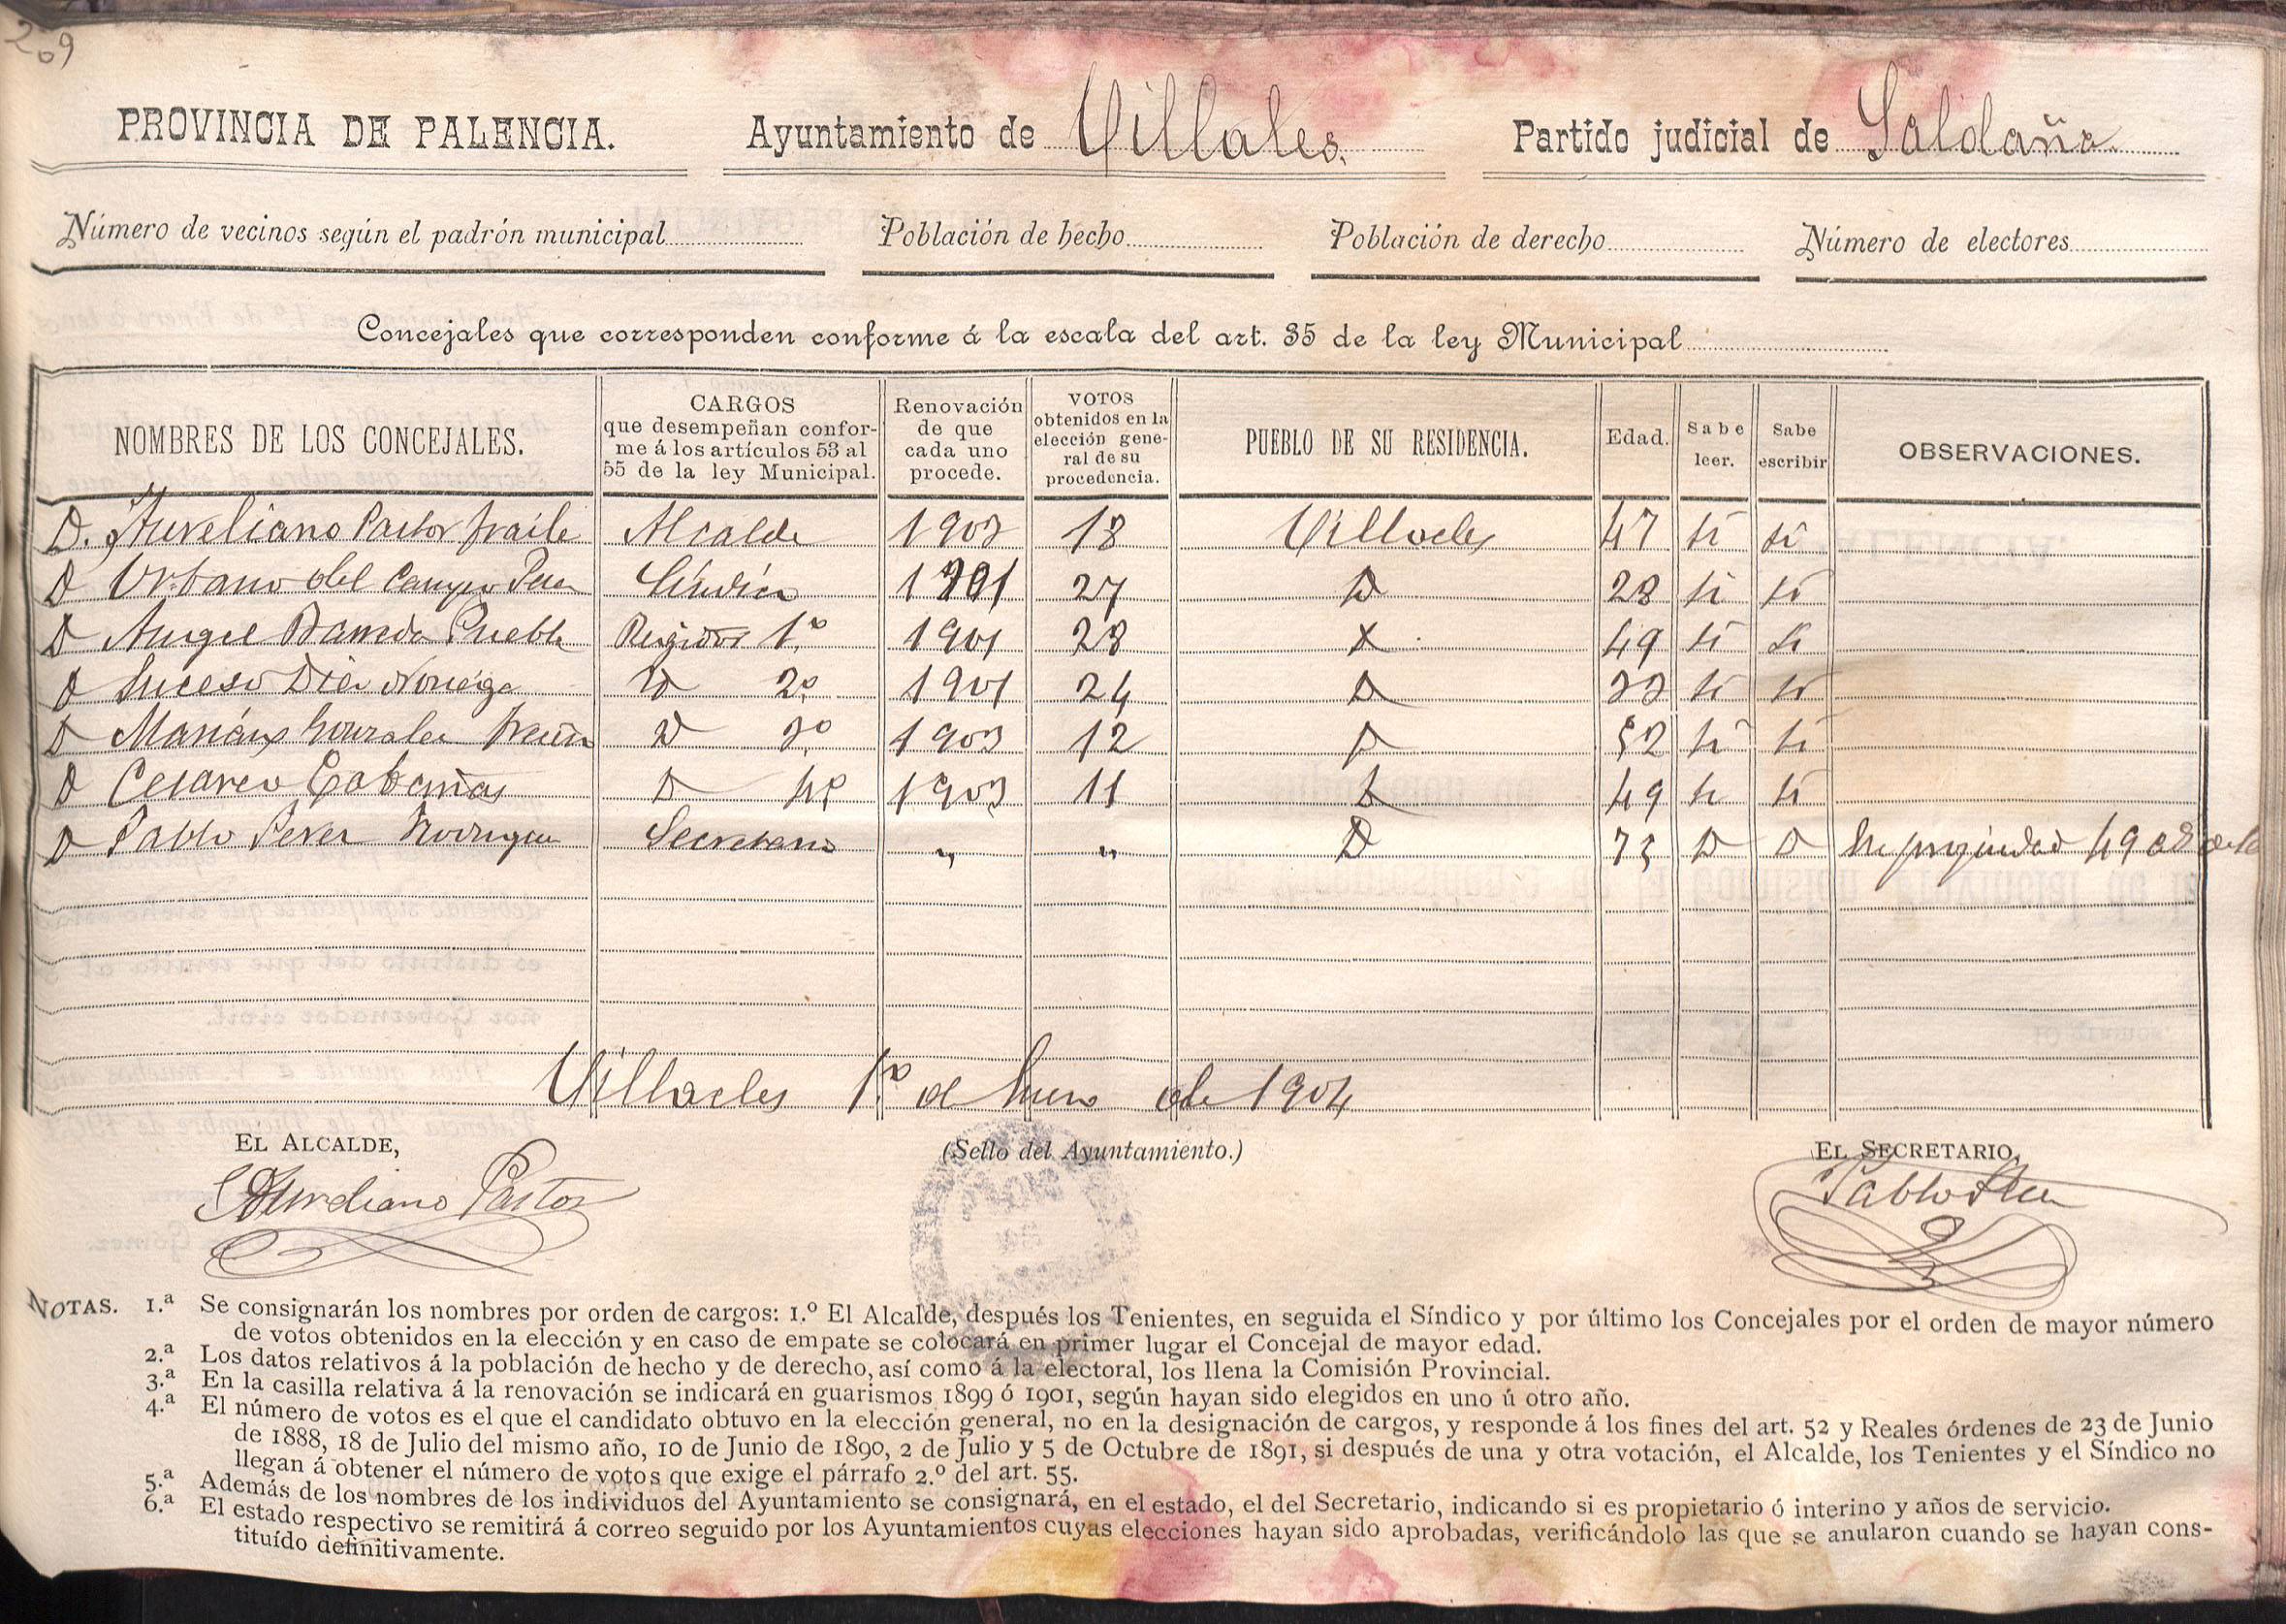 209
PROVINCIA DE PALENCIA. Ayuntamiento de Villales. Partido judicial de Saldaña.
Número de vecinos según el padrón municipal Población de hecho Población de derecho Número de electores
Concejales que corresponden conforme á la escala del art. 35 de la ley Municipal
NOMBRES DE LOS CONCEJALES. CARGOS que desempeñan conforme á los artículos 53 al 55 de la ley Municipal. Renovación de que cada uno procede. VOTOS obtenidos en la elección general de su procedencia. PUEBLO DE SU RESIDENCIA. Edad. Sabe leer. Sabe escribir OBSERVACIONES.
D. Aureliano Pastor fraile Alcalde 1903 18 Villaeles 47 si si
D Urbano del Campo Síndico 1901 27 D 28 si si
D Angel Barreda Puebla Regidor 1.º 1901 28 49 si si
D Suceso Diez Noriega D 2º 1901 24 D 33 si si
D Mariano Gonzalez D 3º 1903 12 D 52 si si
D Cesareo Cabañas D 4º 1903 11 D 49 si si
D Pablo Perez Rodriguez Secretario " " D 73 D D En propiedad 49
Villaeles 1.º de Enero de 1904
EL ALCALDE, (Sello del Ayuntamiento.) EL SECRETARIO,
Aureliano Pastor Pablo Perez
NOTAS. 1.ª Se consignarán los nombres por orden de cargos: 1.º El Alcalde, después los Tenientes, en seguida el Síndico y por último los Concejales por el orden de mayor número
de votos obtenidos en la elección y en caso de empate se colocará en primer lugar el Concejal de mayor edad.
2.ª Los datos relativos á la población de hecho y de derecho, así como á la electoral, los llena la Comisión Provincial.
3.ª En la casilla relativa á la renovación se indicará en guarismos 1899 ó 1901, según hayan sido elegidos en uno ú otro año.
4.ª El número de votos es el que el candidato obtuvo en la elección general, no en la designación de cargos, y responde á los fines del art. 52 y Reales órdenes de 23 de Junio
de 1888, 18 de Julio del mismo año, 10 de Junio de 1890, 2 de Julio y 5 de Octubre de 1891, si después de una y otra votación, el Alcalde, los Tenientes y el Síndico no
llegan á obtener el número de votos que exige el párrafo 2.º del art. 55.
5.ª Además de los nombres de los individuos del Ayuntamiento se consignará, en el estado, el del Secretario, indicando si es propietario ó interino y años de servicio.
6.ª El estado respectivo se remitirá á correo seguido por los Ayuntamientos cuyas elecciones hayan sido aprobadas, verificándolo las que se anularon cuando se hayan cons-
tituído definitivamente.